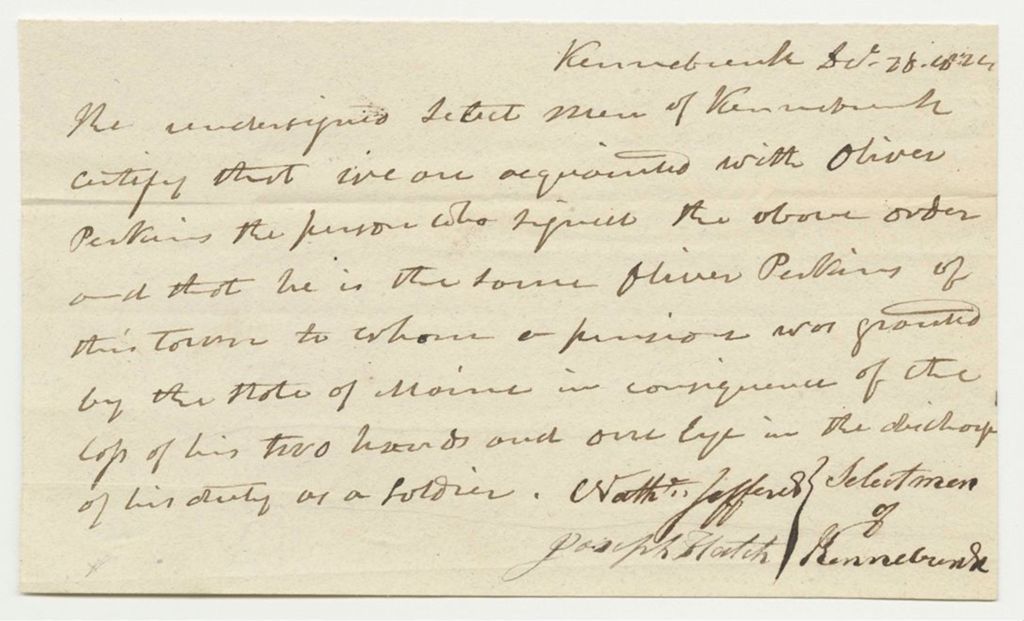 Kennebunk Dec. 28. 1824
The undersigned Select men of Kennebunk
certify that we are acquainted with Oliver
Perkins the person who signed the above order
and that he is the same Oliver Perkins of
this town to whom a pension was granted
by the State of Maine in consequence of the
loss of his two hands and one Eye in the discharge
of his duty as a Soldier. Nathl. Jefferds } Selectmen
of
Joseph Hatch } Kennebunk